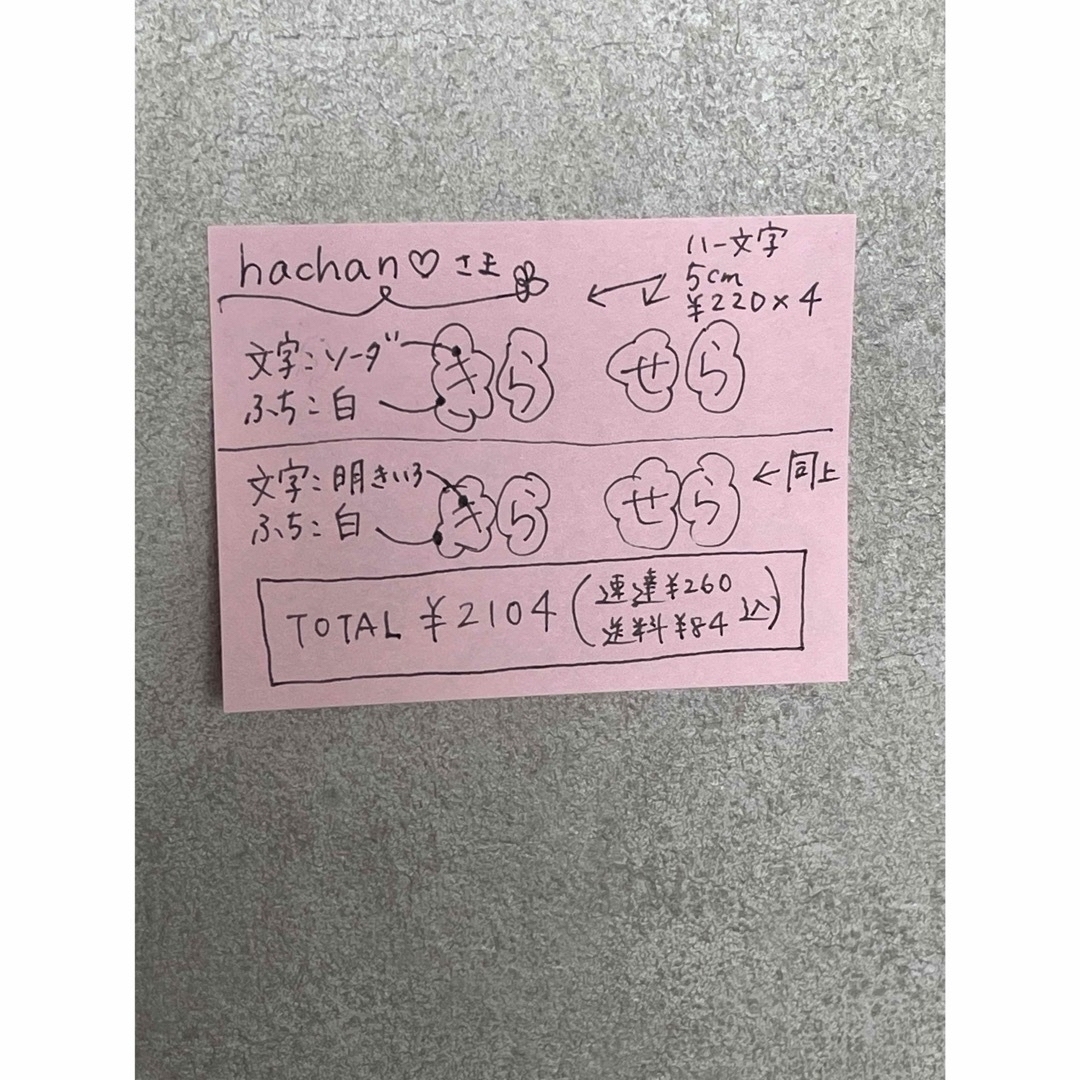 hachan♡さま
ハー文字
5cm
¥220×4
文字:ソーダ
ふち:白
きら せら
文字:明きいろ
ふち:白
きら せら
←同上
TOTAL ¥2104(速達¥260
送料¥84込)